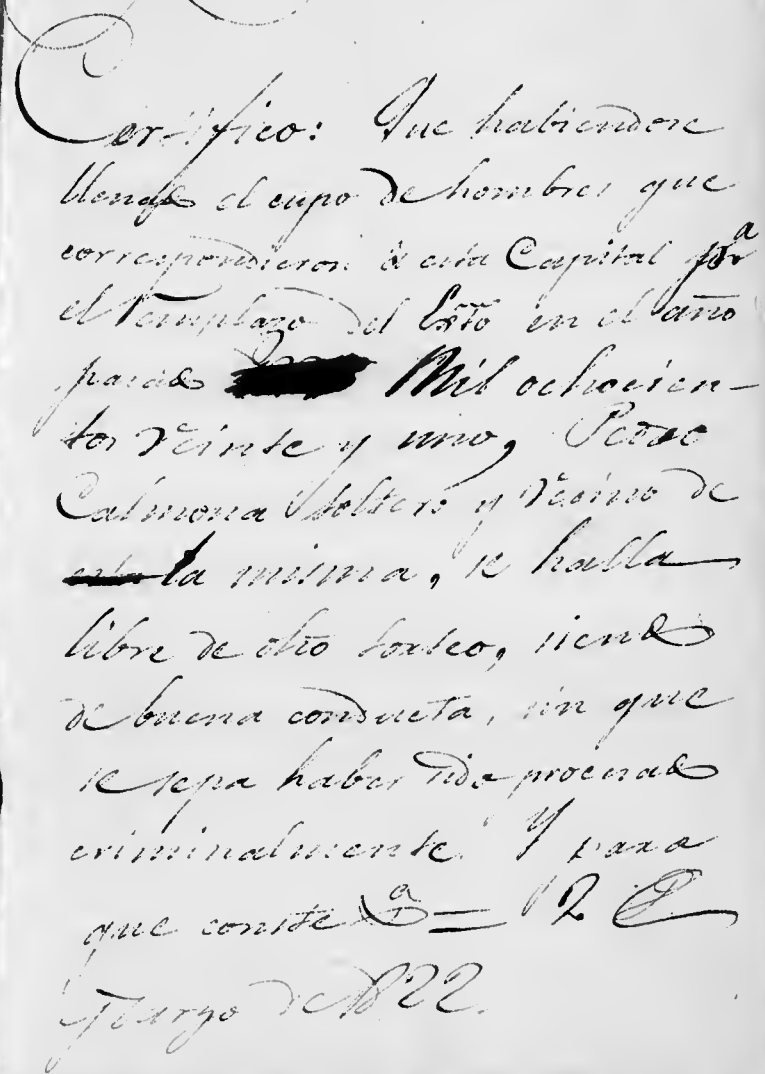 Certifico: Que habiendose
llenado el cupo de hombres que
correspondieron à esta Capital pª
el reemplazo del Extõ en el año
pasado Mil ochocien-
tos veinte y uno, Pedro
Calmona soltero y vecino de
la misma, se halla
libre de otro sorteo, siendo
de buena conducta, sin que
se sepa haber sido procesado
criminalmente. Y para
que conste
Marzo de 1822.